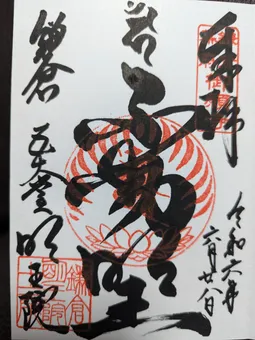 奉拝
令和六年
六月廿八日
不動明王
鎌倉
五大堂 明王院